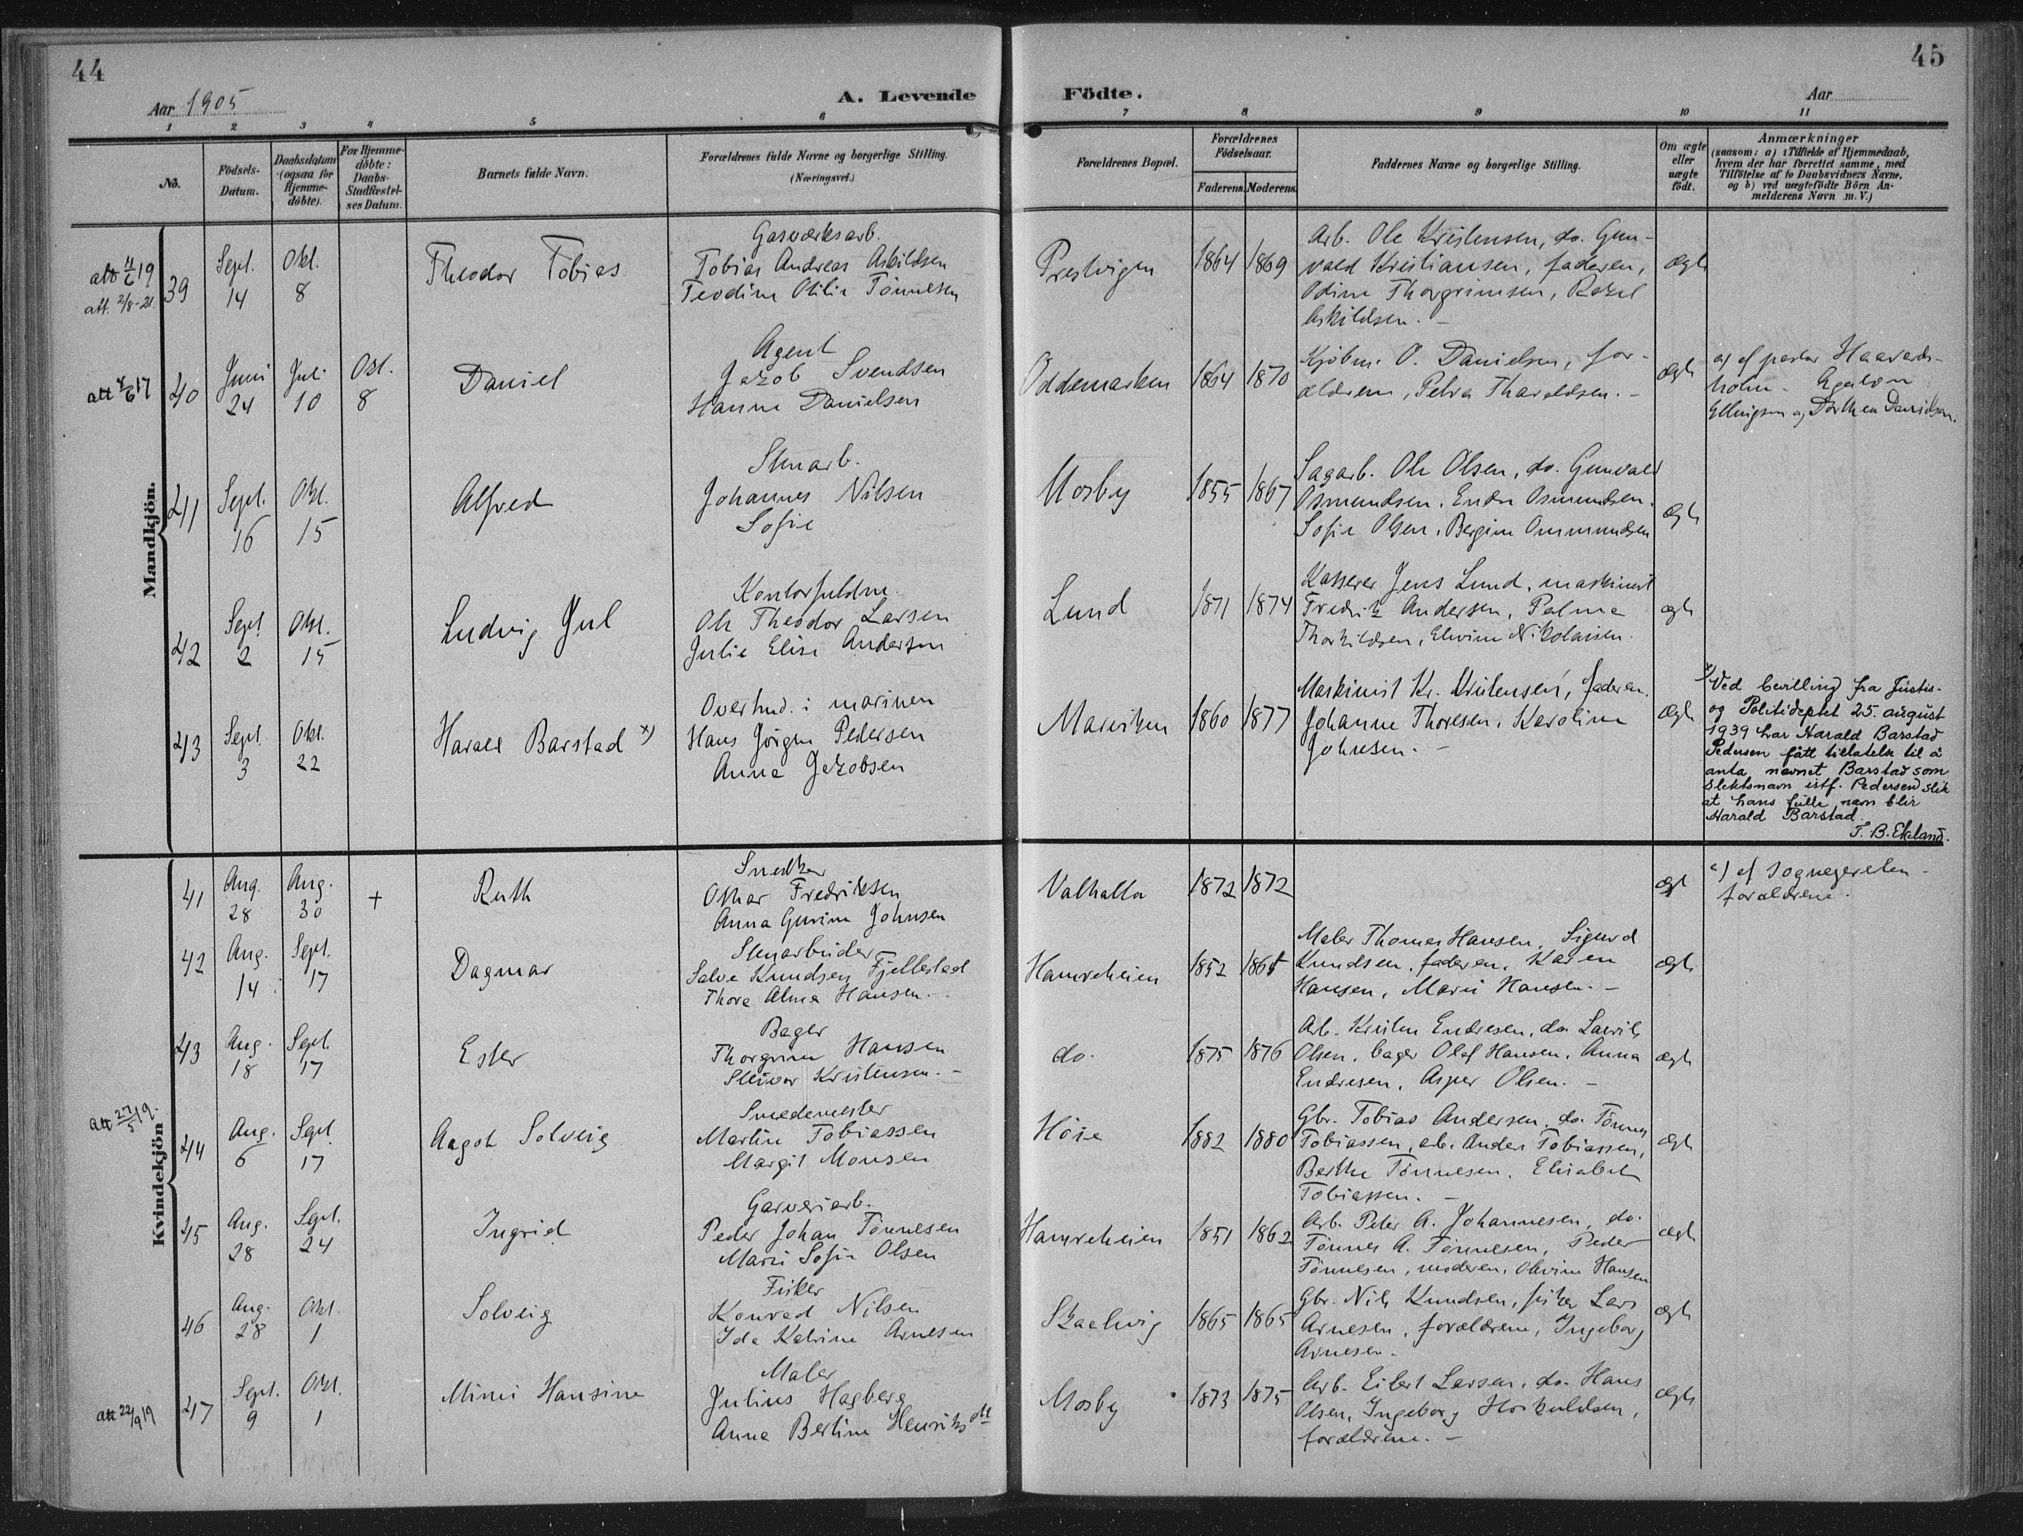 44
Aar 1905
A. Levende
Födte.
45
Aar
1 2 3 4 5 6 7 8 9 10 11
No.
Födsels-Datum.
Daabsdatum (ogsaa for Hjemmedöbte).
For Hjemmedöbte: Daabs-Stadfæstelses Datum.
Barnets fulde Navn.
Forældrenes fulde Navne og borgerlige Stilling.
(Næringsvei.)
Forældrenes Bopæl.
Forældrenes Födselsaar.
Faderens. Moderens.
Faddernes Navne og borgerlige Stilling.
Om ægte eller uægte födt.
Anmærkninger
(saasom: a) i Tilfælde af Hjemmedaab,
hvem der har forrettet samme, med
Tilföielse af to Daabsvidners Navne,
og b) ved uægtefödte Börn An-
melderens Navn m. V.)
Mandkjön.
att 4/6 19
att. 2/8-21
39
Sept. 14
Okt. 8
Theodor Tobias
Gasværksarb.
Tobias Andreas Askildsen
Teodine Otilie Tønnesen
Prestvigen
1864
1869
Arb. Ole Kristensen, do. Gun-
vald Kristiansen, faderen,
Odine Thorgrimsen, Rakel
Askildsen. -
ægte
att 4/6 17
40
Juni 24
Juli 10
Okt. 8
Daniel
Agent
Jakob Svendsen
Hanne Danielsen
Oddemarken
1864
1870
Kjøbm. O. Danielsen, for-
ældrene, Petra Tharaldsen. -
ægte
a) af pastor Haavards-
holm.
Ellingsen og Dorthea Danielsen.
41
Sept. 16
Okt. 15
Alfred
Stenarb.
Johannes Nilsen
Sofie
Mosby
1855
1867
Sagarb. Ole Olsen, do. Gunvald
Osmundsen, Endre Osmundsen.
Sofie Olsen, Bergine Ommundsen
ægte
42
Sept. 2
Okt. 15
Ludvig Jul
Kontorfuldm.
Ole Theodor Larsen
Julie Elise Andersen
Lund
1871
1874
Kasserer Jens Lund, maskinist
Fredrik Andersen, Palma
Thorkildsen, Elvine Nikolaisen.
ægte
43
Sept. 3
Okt. 22
Harald Barstad x)
Overhud. i marinen
Hans Jörgen Pedersen
Anna Jakobsen
Marviken
1860
1877
Maskinist Kr. Kristensen, faderen.
Johanne Thoresen, Karoline
Johnsen. -
ægte
x) Ved bevilling fra Justis-
og Politideptet 25. august
1939 har Harald Barstad
Pedersen fått tillatelse til å
anta navnet Barstad som
slektsnavn istf. Pedersen slik
at hans fulle navn blir
Harald Barstad.
T. B. Ekeland.
Kvindekjön
41
Aug. 28
Aug. 30
+
Ruth
Snedker
Othar Fredriksen
Anna Gurine Johnsen
Valhalla
1872
1872
ægte
a) af sognepresten -
forældrene.
42
Aug. 14
Sept. 17
Dagmar
Stenarbeider
Salve Knudsen Fjellestad
Thora Alma Hansen.
Hamreheien
1852
Maler Thomas Hansen, Sigurd
Knudsen, faderen, Karen
Hansen, Marie Hansen. -
ægte
43
Aug. 18
Sept. 17
Ester
Bager
Thorgrim Hansen
Kristensen. -
do.
1875
1876
Arb. Kristen Endresen, do. Laurits
Olsen, bager Olaf Hansen, Anna
Endresen, Asper Olsen. -
ægte
att 27/5 19.
44
Aug. 6
Sept. 17
Aagot Solveig
Smedemester
Martin Tobiassen
Margit Monsen
Höie
1882
1880
Gbr. Tobias Andersen, do. Tönnes
Tobiassen, arb. Anders Tobiassen,
Berthe Tönnesen, Elisabet
Tobiassen. -
ægte
45
Aug. 28
Sept. 24
Ingrid
Garveriarb.
Peder Johan Tönnesen
Marie Sofie Olsen
Hamreheien
1851
1862
Arb. Peter A. Johannesen, do.
Tönnes A. Tönnesen, Peder
Tönnesen, moderen, Olvine Hansen
ægte
46
Aug. 28
Okt. 1
Solveig
Fisker
Konrad Nilsen
Ida Katrine Arnesen
Skaelvig
1865
1865
Gbr. Nils Knudsen, fisker Lars
Arnesen, forældrene, Ingeborg
Arnesen.
ægte
att 22/9 19
47
Sept. 9
Okt. 1
Mimi Hansine
Maler
Julius Hagberg
Anna Bertine Henriksdtt
Mosby
1873
1875
Arb. Eilert Larsen, do. Hans
Olsen, Ingeborg Hoskuldsen,
forældrene. -
ægte